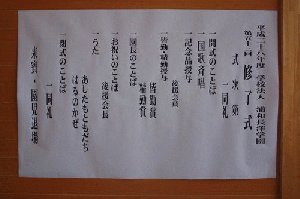 平成二十八年度 学校法人 浦和長澤学園
第五十一回 修了式
式次第
一同礼
一 開式のことば
一 国歌斉唱
一 記念品授与
後援会賞
一 皆勤・精勤授与
皆勤賞
精勤賞
一 園長のことば
一 お祝いのことば
後援会長
一 うた
あしたもともだち
はるのかぜ
一 閉式のことば
一同礼
来賓・園児退場